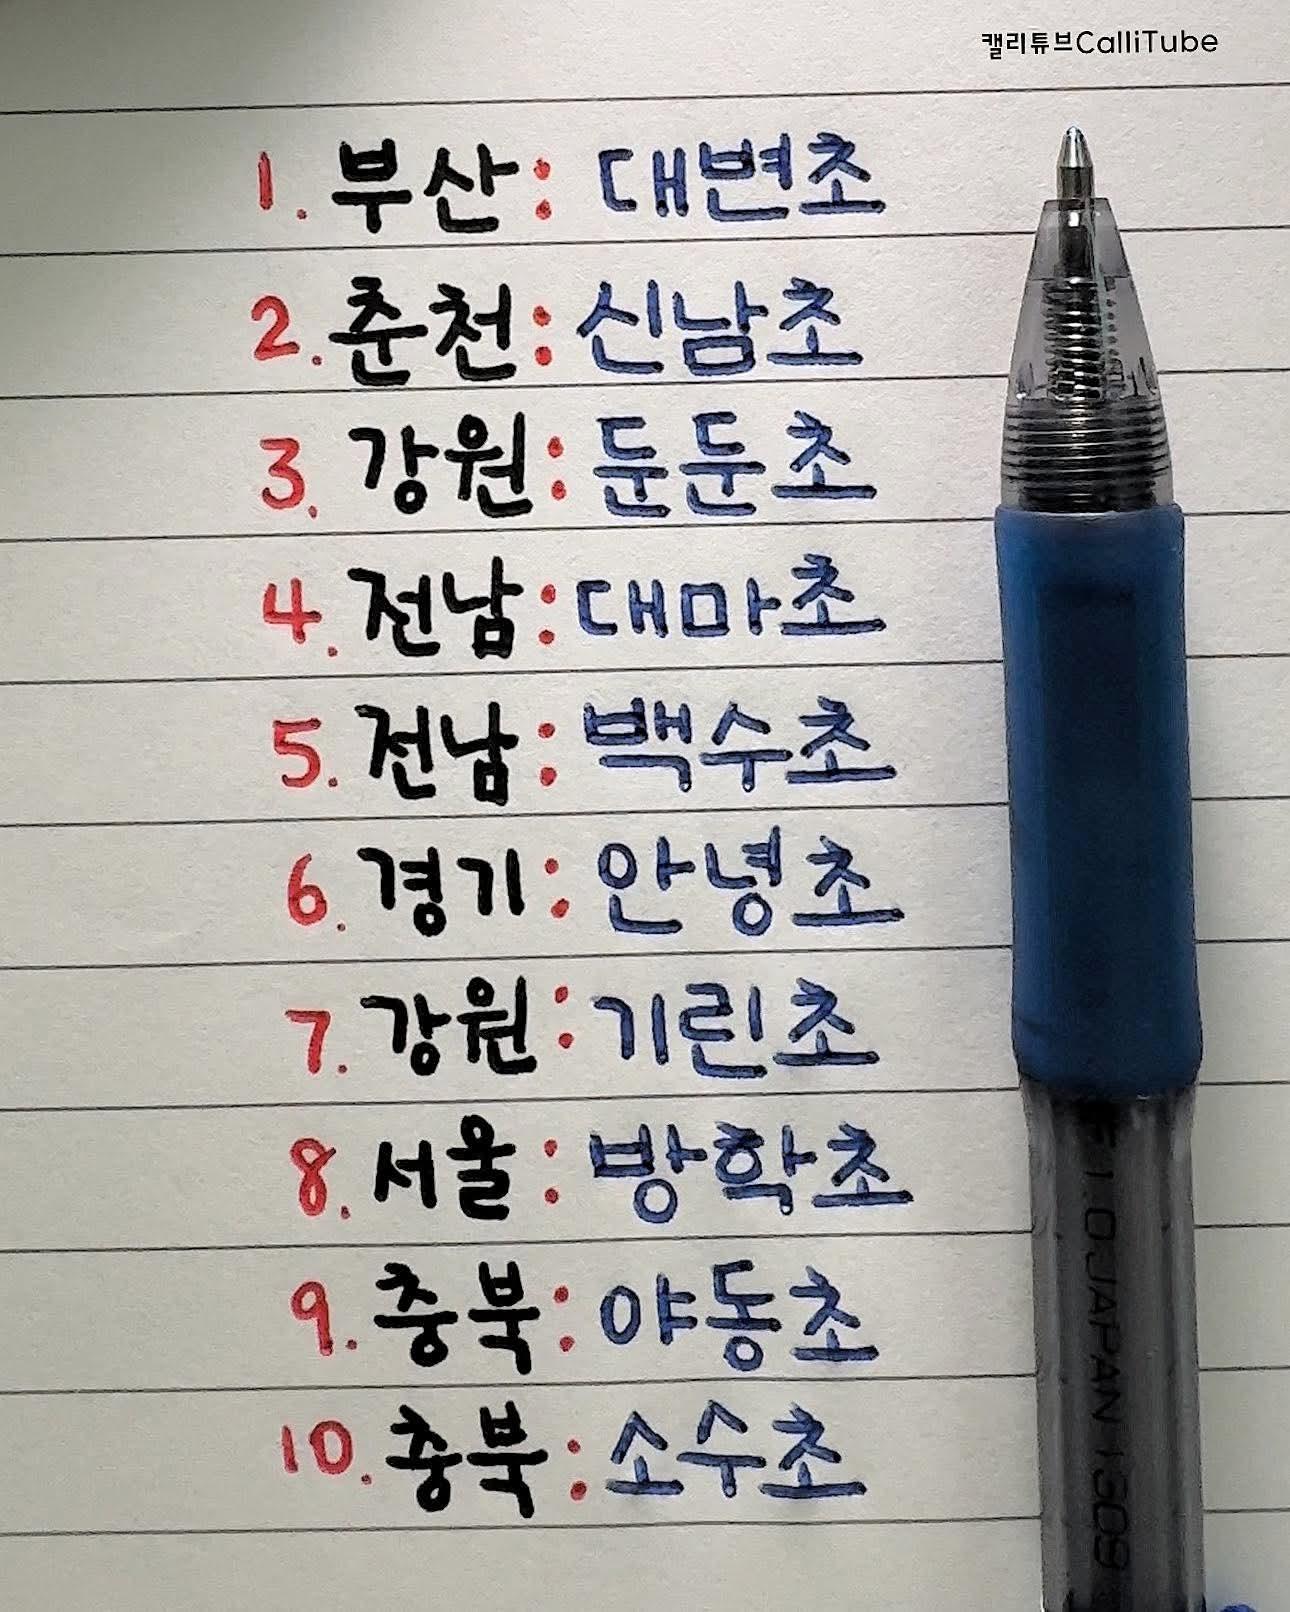 캘리튜브CalliTube
1. 부산: 대변초
2. 춘천: 신남초
3. 강원: 둔둔초
4. 전남: 대마초
5. 전남: 백수초
6. 경기: 안녕초
7. 강원: 기린초
8. 서울: 방학초
9. 충북: 야동초
10. 충북: 소수초
F 1.0 JAPAN 1309